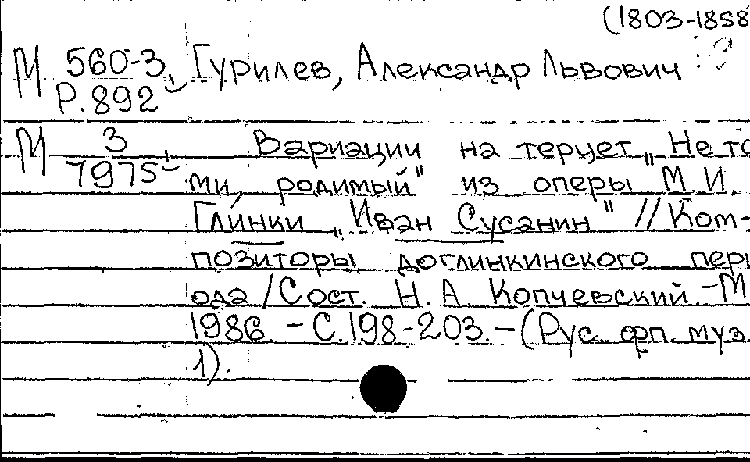 (1803-1858
М 560-3 Гурилев, Александр Львович
Р.892
М 3 Вариации на терцет „Не то
7975 ми, родимый" из оперы М.И.
Глинки „Иван Сусанин" // Ком-
позиторы доглинкинского пери
ода / Сост. Н.А. Копчевский.-М
1986. - С.198-203. - (Рус. фп. муз.
1).